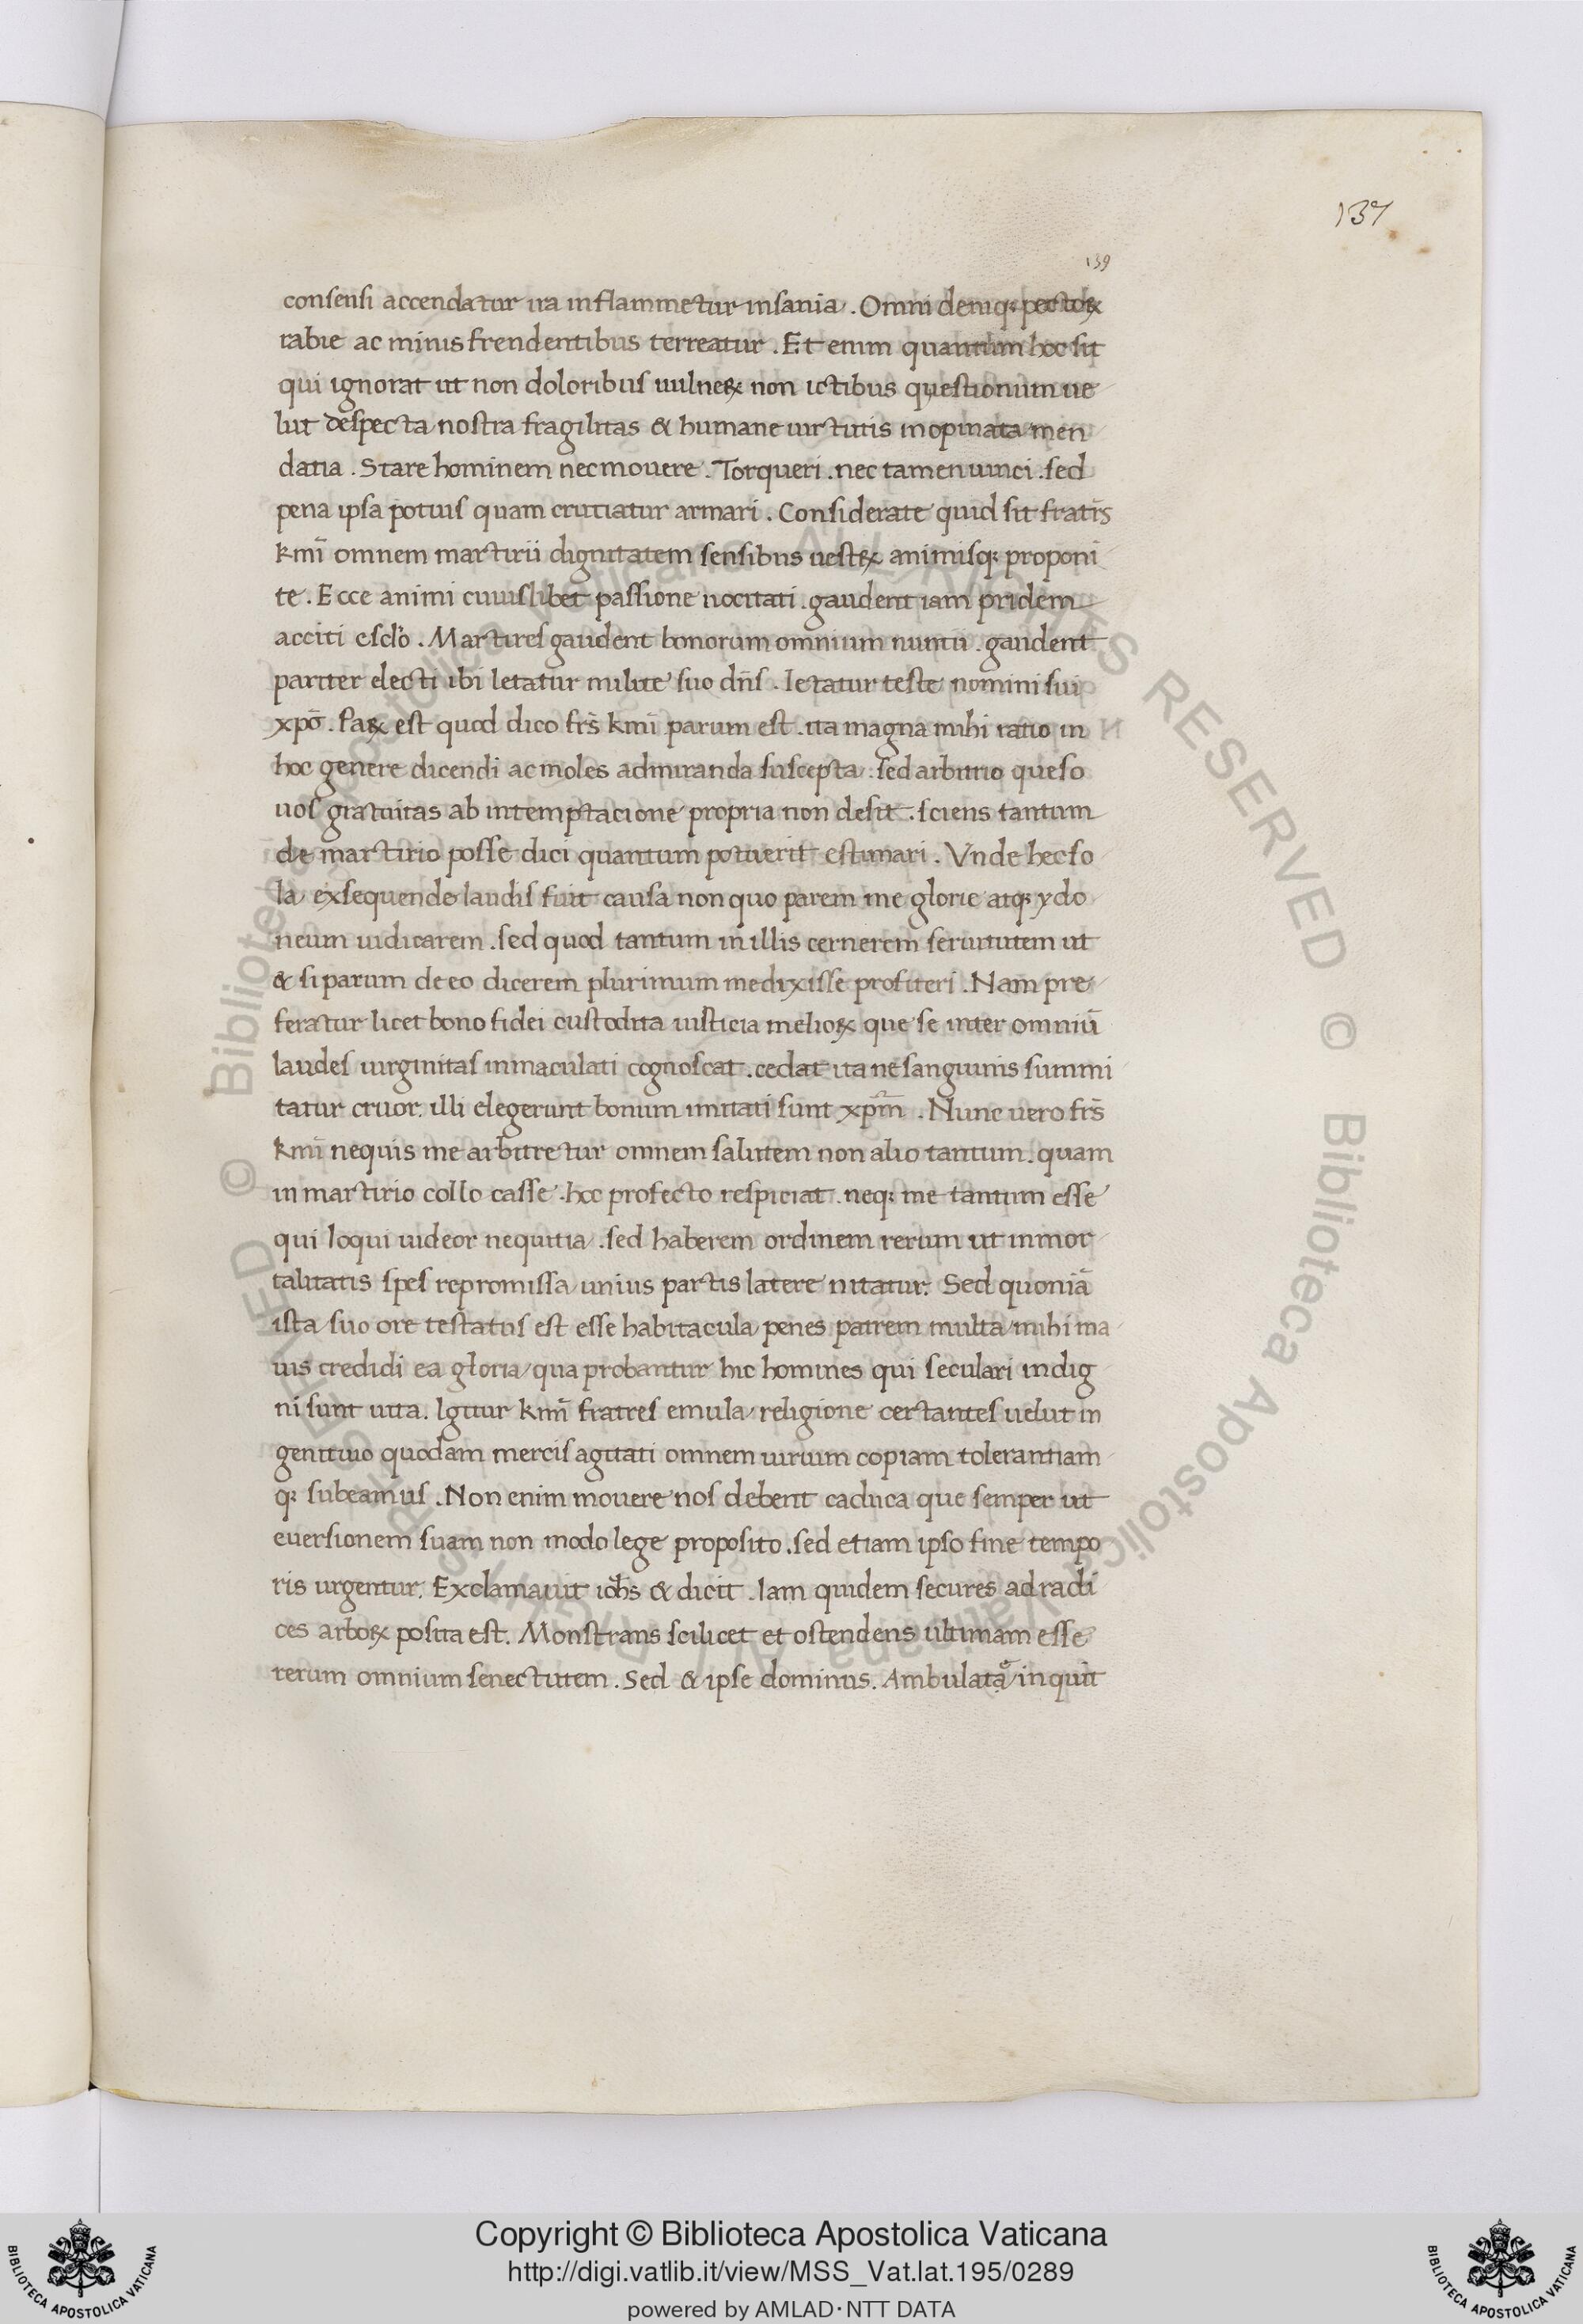 137
139
consensi accendatur ira inflammetur insania. Omni deniqꝫ pectoꝝ
rabie ac minis frendentibus terreatur. Et enim quantum hoc sit
qui ignorat ut non doloribus uulneꝝ non ictibus questionum ue
lut despecta nostra fragilitas & humane uirtutis inopinata men
datia. Stare hominem nec mouere. Torqueri. nec tamen uinci. sed
pena ipsa potius quam cruciatur armari. Considerate quid sit fratr̄s
kmī omnem martirii dignitatem sensibus uestꝝ animisqꝫ proponi
te. Ecce animi cuiuslibet passione uocitati. gaudent iam pridem
acciti esclo. Martires gaudent bonorum omnium nuntii. gaudent
pariter electi ibi letatur milite suo dn̄s. letatur teste nomini sui
xpō. Paꝝ est quod dico frs̄ kmī parum est. ita magna mihi ratio in
hoc genere dicendi ac moles admiranda suscepta. sed arbitrio queso
uos gratuitas ab intemptacione propria non desit. sciens tantum
de martirio posse dici quantum potuerit estimari. Vnde hec so
la exsequende laudis fuit causa non quo parem me glorie atqꝫ ydo
neum iudicarem. sed quod tantum in illis cernerem seruitutem ut
& si parum de eo dicerem plurimum me dixisse profiteri. Nam pre
feratur licet bono fidei custodita iusticia melioꝝ que se inter omniū
laudes uirginitas inmaculati cognoscat. cedat ita ne sanguinis summi
tatur cruor. illi elegerunt bonum imitati sunt xpm̄. Nunc uero frs̄
kmī nequis me arbitretur omnem salutem non alio tantum. quam
in martirio collo casse. hoc profecto respiciat. neqꝫ me tantum esse
qui loqui uideor nequitia. sed haberem ordinem rerum ut inmor
talitatis spes repromissa unius partis latere nitatur. Sed quoniā
ista suo ore testatus est esse habitacula penes patrem multa mihi ma
uis credidi ea gloria qua probantur hic homines qui seculari indig
ni sunt uita. Igitur kmī fratres emula religione certantes uelut in
genitiuo quodam mercis agitati omnem uirium copiam tolerantiam
qꝫ subeamus. Non enim mouere nos debent caduca que semper ut
euersionem suam non modo lege proposito. sed etiam ipso fine tempo
ris urgentur. Exclamauit ioh̄s & dicit. Iam quidem secures ad radi
ces arboꝝ posita est. Monstrans scilicet et ostendens ultimam esse
rerum omnium senectutem. Sed & ipse dominus. Ambulata inquit
Copyright © Biblioteca Apostolica Vaticana
http://digi.vatlib.it/view/MSS_Vat.lat.195/0289
powered by AMLAD·NTT DATA
BIBLIOTECA APOSTOLICA VATICANA
BIBLIOTECA APOSTOLICA VATICANA